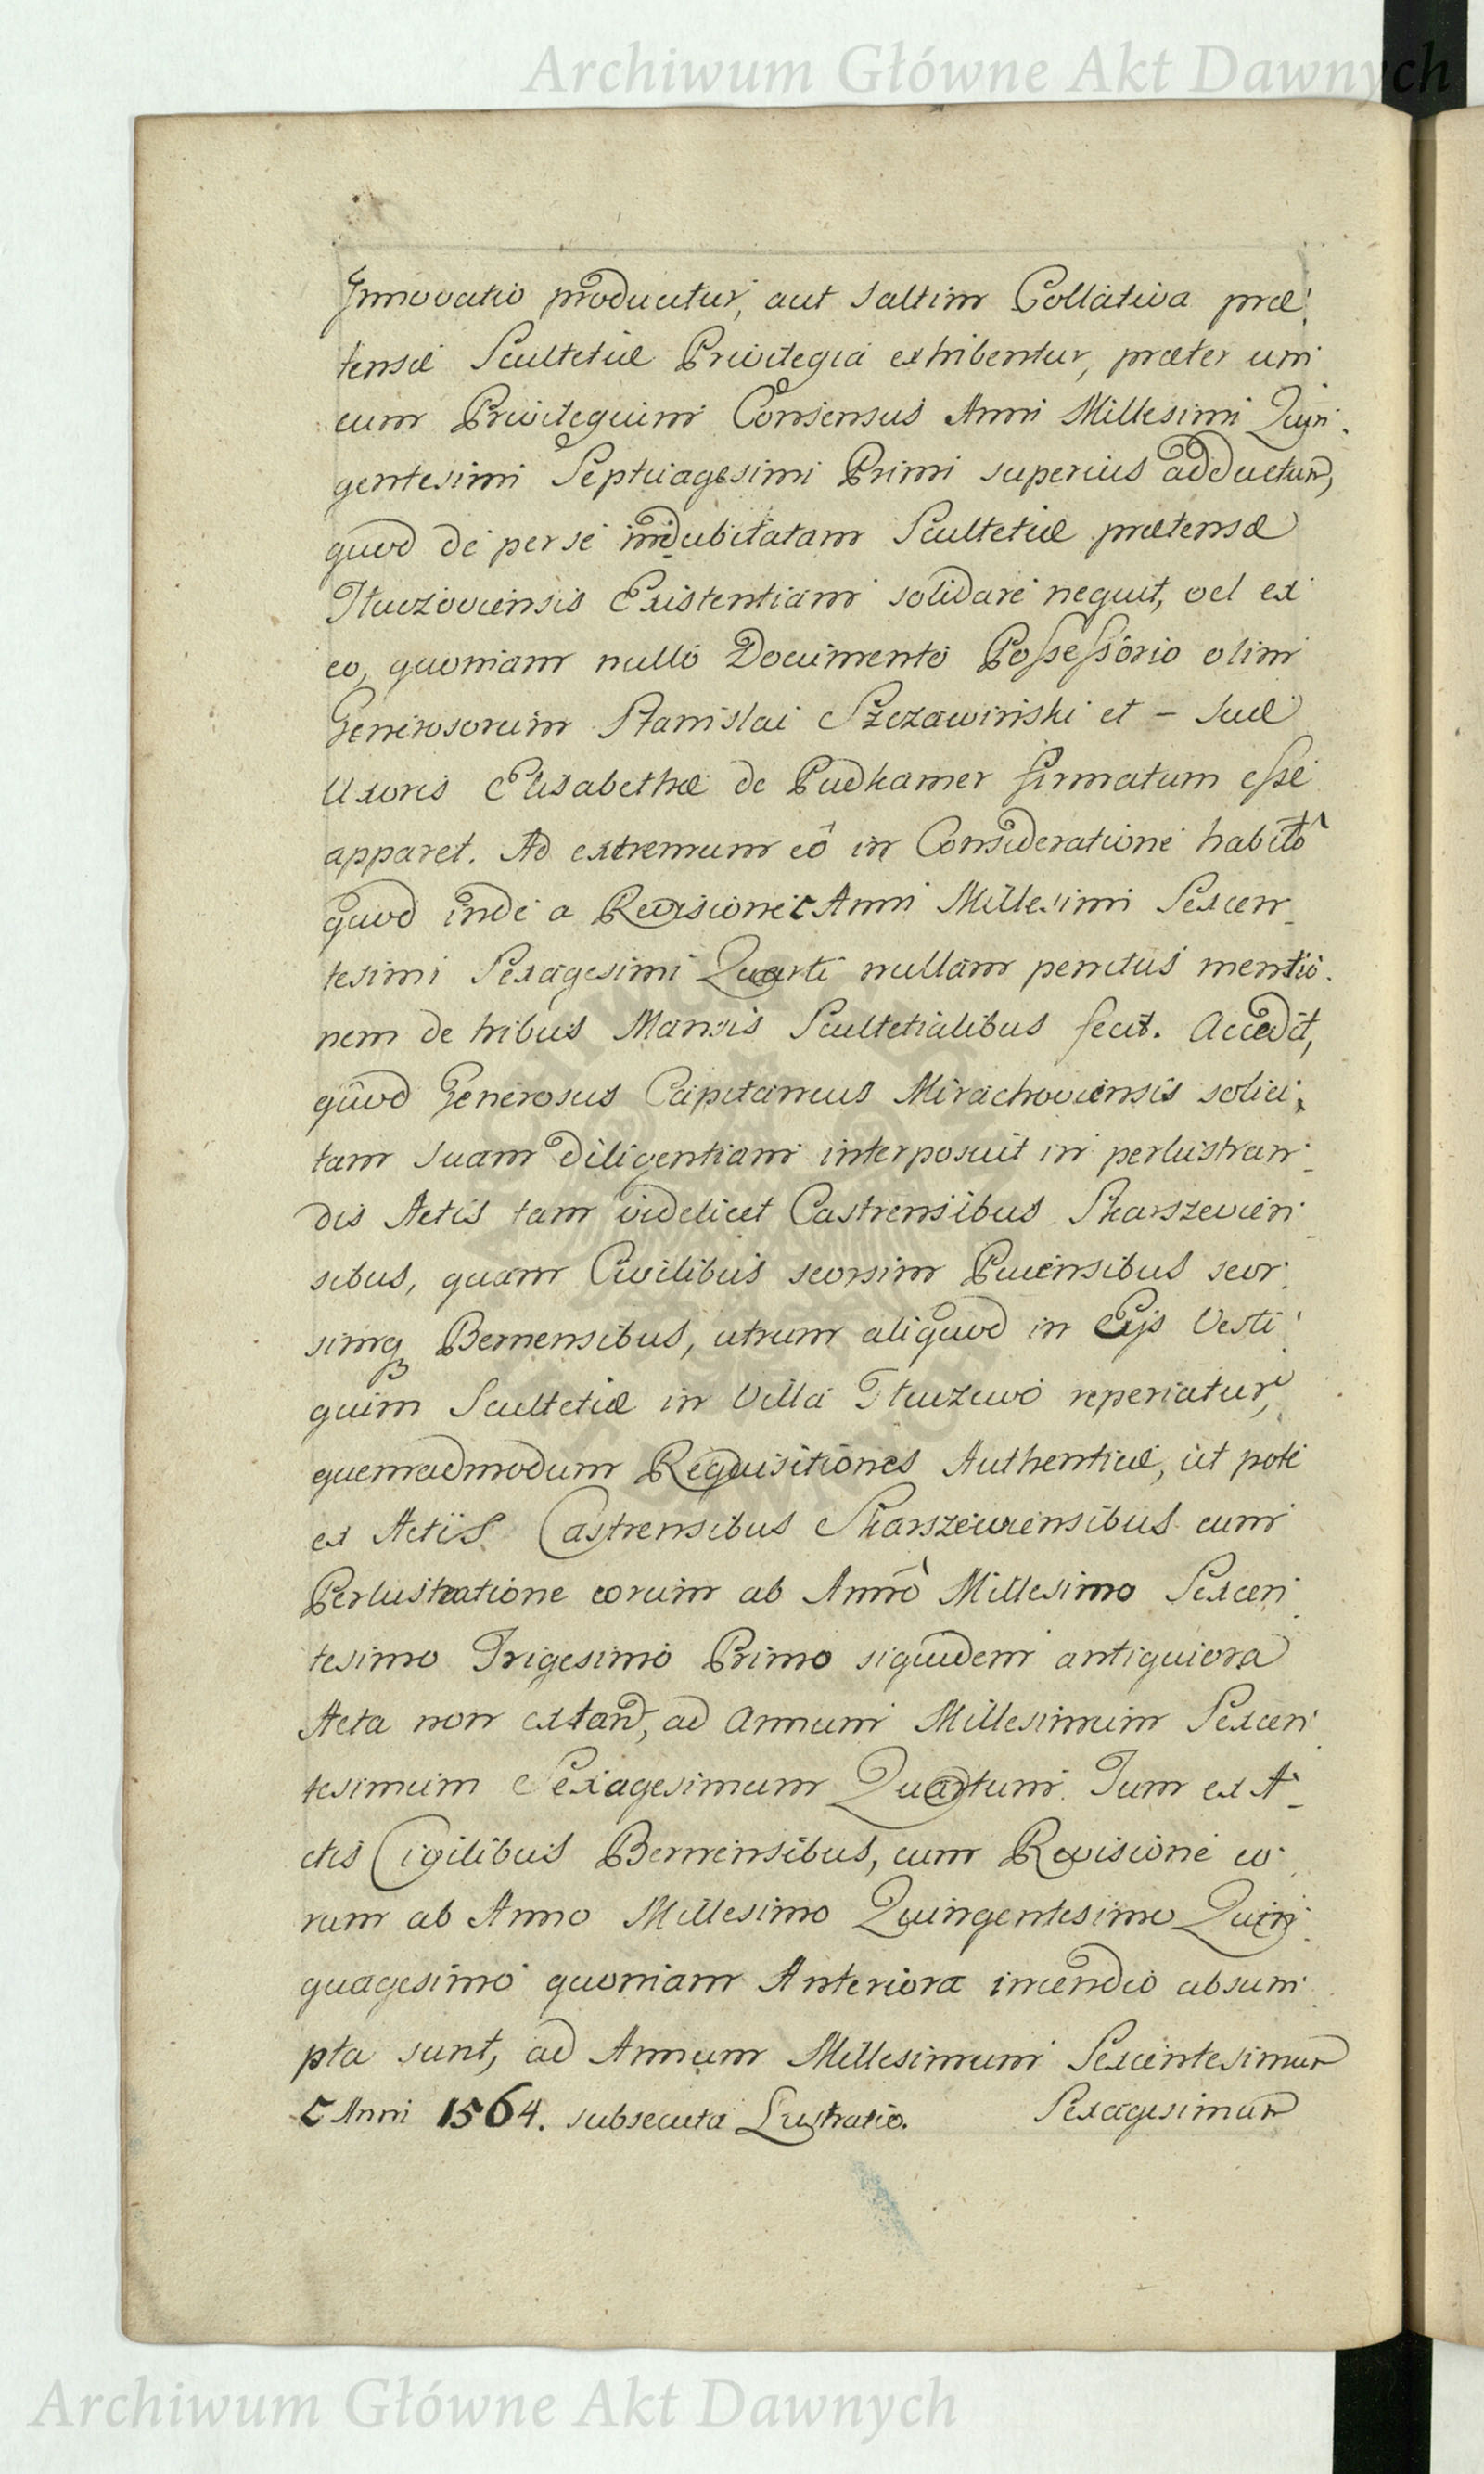 Archiwum Główne Akt Dawnych
Innovatio producitur, aut saltim Collativa præ
tensæ Scultetiæ Privilegia exhibentur, præter uni
cum Privilegium Consensus Anni Millesimi Quin
gentesimi Septuagesimi Primi superius adductum,
quod de per se indubitatam Scultetiæ prætensæ
Tłuczoviensis Existentiam solidare nequit, vel ex
eo, quoniam nullo Documento Possessorio olim
Generosorum Stanislai Szczawiński et – suæ
Uxoris Elisabethæ de Pudkamer firmatum esse
apparet. Ad extremum eô in Consideratione habitô
quod inde a Revisione Anni Millesimi Sexcen
tesimi Sexagesimi Quarti nullam penitus mentio
nem de tribus Mansis Scultetialibus fecit. Accedit,
quod Generosus Capitaneus Mirachoviensis solici
tam suam diligentiam interposuit in perlustran
dis Actis tam videlicet Castrensibus Skarszevien
sibus, quam Civilibus seorsim Pucensibus seor
simq Bernensibus, utrum aliquod in Eijs Vesti
gium Scultetiæ in Villa Tłuzewo reperiatur,
quemadmodum Requisitiones Authenticæ, ut pote
ex Actis Castrensibus Skarszewiensibus cum
Perlustratione eorum ab Anno Millesimo Sexcen
tesimo Trigesimo Primo siquidem antiquiora
Acta non extant, ad Annum Millesimum Sexcen
tesimum Sexagesimum Quartum. Tum ex A
ctis Civilibus Bernensibus, cum Revisione eo
rum ab Anno Millesimo Quingentesimo Quin
quagesimo quoniam Anteriora incendio absum
pta sunt, ad Annum Millesimum Sexcentesimum
Anni 1564. subsecuta Lustratio. Sexagesimum
Archiwum Główne Akt Dawnych